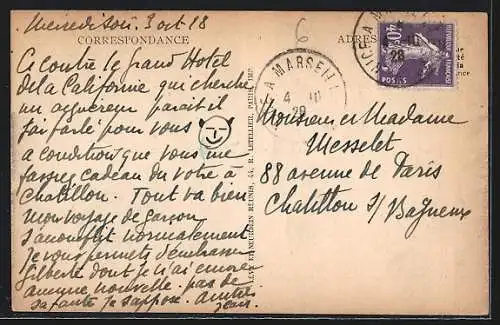 Mercredi soir 3 oct 28
CORRESPONDANCE
Ci contre le grand Hotel
de la Californie qui cherche
un acquereur parait il
fait pour vous
a condition que vous me
fassiez cadeau du votre à
Chatillon. Tout va bien
Mon voyage de garçon
s'accomplit normalement
Je vous permets d'embrasser
Gilberte dont je n'ai encore
aucune nouvelle. pas de
sa faute je suppose. Amitiés
Jean
6
ADRES
MARSEILL
4 10
28
28
40c
POSTES
Monsieur et Madame
Messelet
88 avenue de Paris
Chatillon s/ Bagneux